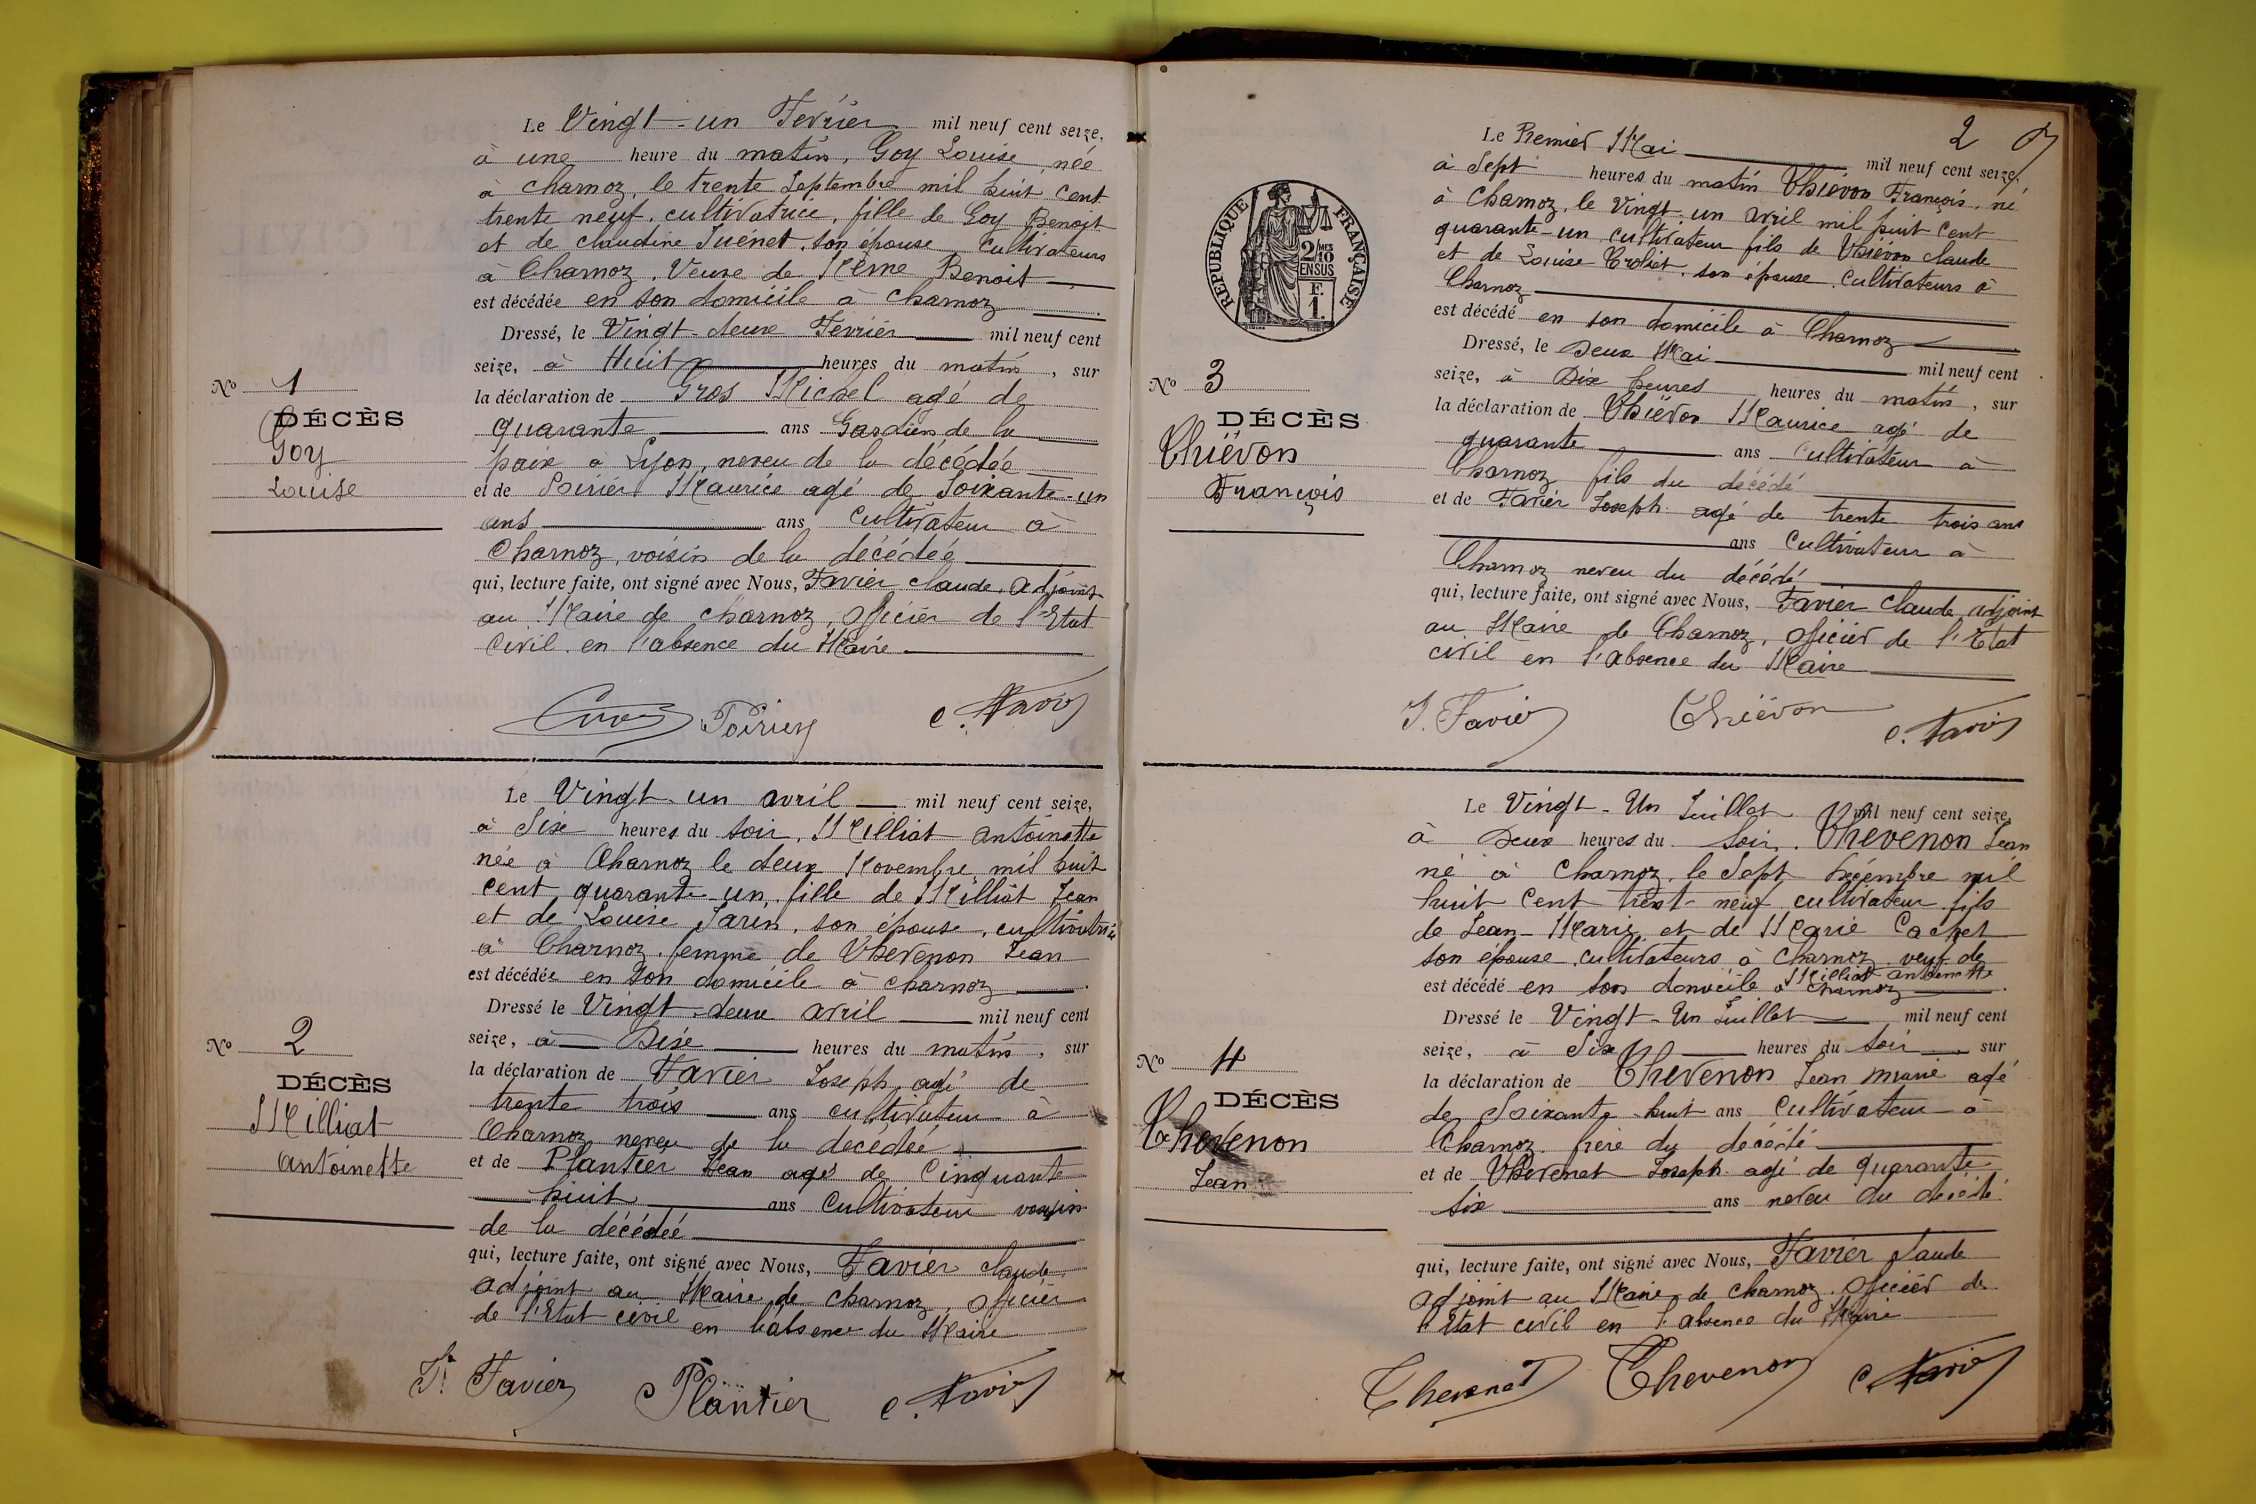 Le Vingt-un Février mil neuf cent seize,
à une heure du matin, Goy Louise née
à Charnoz, le trente Septembre mil huit cent
trente neuf, cultivatrice, fille de Goy Benoit
et de Claudine Juénet, son épouse, cultivateurs
à Charnoz, Veuve de Benoit
est décédée en son domicile à Charnoz
Dressé, le Vingt-deux Février mil neuf cent
seize, à Huit heures du matin, sur
la déclaration de Gros Michel agé de
quarante ans Gardien de la
paix à Lyon, neveu de la décédée
et de Poirier Maurice agé de Soixante-un
ans ans, cultivateur à
Charnoz, voisin de la décédée
qui, lecture faite, ont signé avec Nous, Favier Claude, adjoint
au Maire de Charnoz, Officier de l'Etat
Civil en l'absence du Maire
N° 1
DÉCÈS
Goy
Louise
Poirier C. Favier
Le Vingt-un avril mil neuf cent seize,
à Six heures du Soir, Milliat antoinette
née à Charnoz le deux Novembre mil huit
cent quarante-un, fille de Milliat Jean
et de Louise Jarin, son épouse, cultivatrice
à Charnoz, femme de Thevenon Jean
est décédée en son domicile à Charnoz
Dressé le Vingt-deux avril mil neuf cent
seize, à Dix heures du matin, sur
la déclaration de Favier Joseph, agé de
trente trois ans cultivateur à
Charnoz neveu de la décédée
et de Plantier Jean agé de Cinquante
huit ans cultivateur voisin
de la décédée
qui, lecture faite, ont signé avec Nous, Favier Claude
adjoint au Maire de Charnoz, Officier
de l'Etat civil en l'absence du Maire
N° 2
DÉCÈS
Milliat
antoinette
Favier Plantier C. Favier
2
Le Premier Mai mil neuf cent seize,
à Sept heures du matin Thiévon François, né
à Charnoz, le Vingt-un avril mil huit cent
quarante-un cultivateur fils de Thiévon Claude
et de Louise Troliet, son épouse, cultivateurs à
Charnoz
est décédé en son domicile à Charnoz
Dressé, le Deux Mai mil neuf cent
seize, à Dix heures heures du matin, sur
la déclaration de Thiévon Maurice agé de
quarante ans cultivateur à
Charnoz fils du décédé
et de Favier Joseph agé de trente trois ans
ans cultivateur à
Charnoz neveu du décédé
qui, lecture faite, ont signé avec Nous, Favier Claude, adjoint
au Maire de Charnoz, Officier de l'Etat
civil en l'absence du Maire
RÉPUBLIQUE FRANÇAISE
2/10
MES
EN SUS
F.
1.
N° 3
DÉCÈS
Thiévon
François
J. Favier Thiévon C. Favier
Le Vingt-Un Juillet mil neuf cent seize,
à Deux heures du Soir, Thevenon Jean
né à Charnoz, le Sept Décembre mil
huit cent trent-neuf cultivateur fils
de Jean-Marie et de Marie Cachet
son épouse cultivateurs à Charnoz veuf de
Milliat antoinette
est décédé en son domicile à Charnoz
Dressé le Vingt-Un Juillet mil neuf cent
seize, à Six heures du Soir, sur
la déclaration de Thevenon Jean Marie agé
de Soixante huit ans Cultivateur à
Charnoz frère du décédé
et de Thevenet Joseph agé de quarante
six ans neveu du décédé
qui, lecture faite, ont signé avec Nous, Favier Claude
adjoint au Maire de Charnoz, Officier de
l'Etat civil en l'absence du Maire
N° 4
DÉCÈS
Thevenon
Jean
Thevenet Thevenon C. Favier